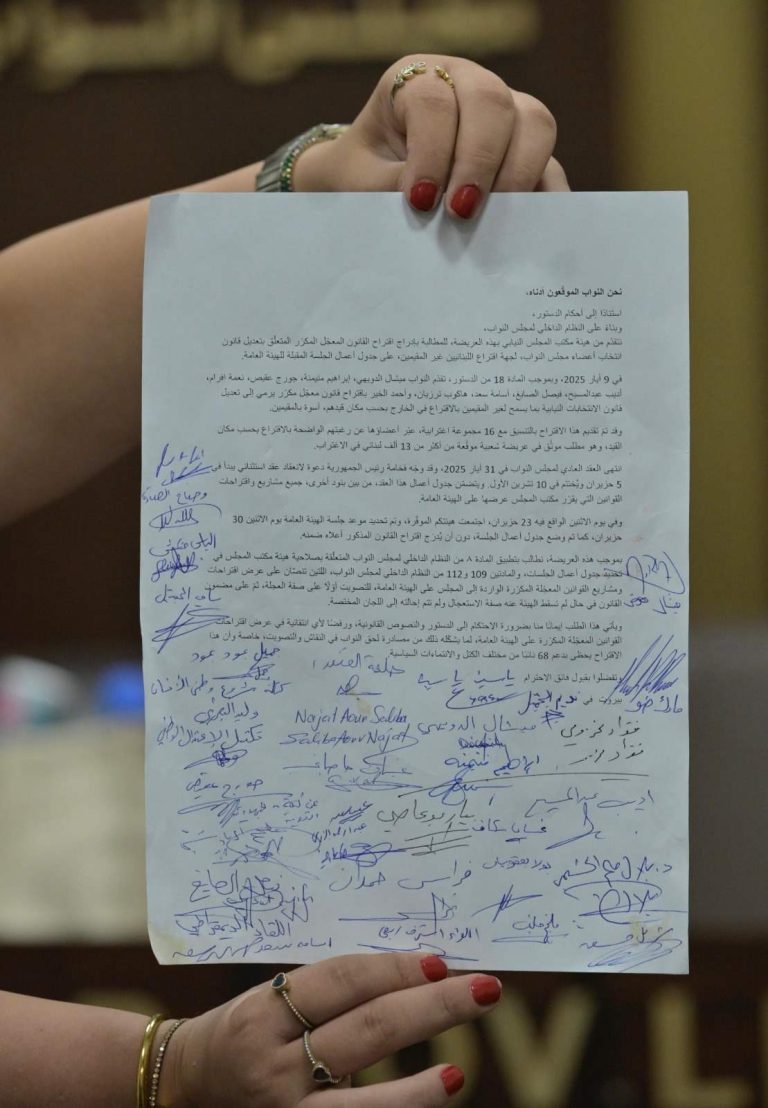 نحن النواب الموقّعون أدناه،
استنادًا إلى أحكام الدستور،
وبناءً على النظام الداخلي لمجلس النواب،
نتقدّم من هيئة مكتب المجلس النيابي بهذه العريضة، للمطالبة بإدراج اقتراح القانون المعجّل المكرّر المتعلّق بتعديل قانون
انتخاب أعضاء مجلس النواب، لجهة اقتراع اللبنانيين غير المقيمين، على جدول أعمال الجلسة المقبلة للهيئة العامة.
في 9 أيار 2025، وبموجب المادة 18 من الدستور، تقدّم النواب ميشال الدويهي، إبراهيم منيمنة، جورج عقيص، نعمة افرام،
أديب عبدالمسيح، فيصل الصايغ، أسامة سعد، هاكوب ترزيان، وأحمد الخير باقتراح قانون معجّل مكرّر يرمي إلى تعديل
قانون الانتخابات النيابية بما يسمح لغير المقيمين بالاقتراع في الخارج بحسب مكان قيدهم، أسوة بالمقيمين.
وقد تمّ تقديم هذا الاقتراح بالتنسيق مع 16 مجموعة اغترابية، عبّر أعضاؤها عن رغبتهم الواضحة بالاقتراع بحسب مكان
القيد، وهو مطلب موثّق في عريضة شعبية موقّعة من أكثر من 13 ألف لبناني في الاغتراب.
انتهى العقد العادي لمجلس النواب في 31 أيار 2025، وقد وجّه فخامة رئيس الجمهورية دعوة لانعقاد عقد استثنائي يبدأ في
5 حزيران ويُختتم في 10 تشرين الأول. ويتضمّن جدول أعمال هذا العقد، من بين بنود أخرى، جميع مشاريع واقتراحات
القوانين التي يقرّر مكتب المجلس عرضها على الهيئة العامة.
وفي يوم الاثنين الواقع فيه 23 حزيران، اجتمعت هيئتكم الموقّرة، وتمّ تحديد موعد جلسة الهيئة العامة يوم الاثنين 30
حزيران، كما تم وضع جدول أعمال الجلسة، دون أن يُدرج اقتراح القانون المذكور أعلاه ضمنه.
بموجب هذه العريضة، نطالب بتطبيق المادة ٨ من النظام الداخلي لمجلس النواب المتعلّقة بصلاحية هيئة مكتب المجلس في
تحديد جدول أعمال الجلسات، والمادتين 109 و112 من النظام الداخلي لمجلس النواب، اللتين تنصّان على عرض اقتراحات
ومشاريع القوانين المعجّلة المكرّرة الواردة إلى المجلس على الهيئة العامة، للتصويت أولًا على صفة العجلة، ثمّ على مضمون
القانون في حال لم تسقط الهيئة عنه صفة الاستعجال ولم تتم إحالته إلى اللجان المختصة.
ويأتي هذا الطلب إيمانًا منا بضرورة الاحتكام إلى الدستور والنصوص القانونية، ورفضًا لأي انتقائية في عرض اقتراحات
القوانين المعجّلة المكرّرة على الهيئة العامة، لما يشكّله ذلك من مصادرة لحق النواب في النقاش والتصويت، خاصة وأن هذا
الاقتراح يحظى بدعم 68 نائبًا من مختلف الكتل والانتماءات السياسية.
وتفضلوا بقبول فائق الاحترام
بيروت في
ميشال معوض
جميل عبود عبود
ياسين ياسين
نديم الجميل
مارك ضو
Najat Aoun Saliba
Saliba Aoun Najat
ميشال الدويهي
فؤاد مخزومي
ابراهيم منيمنة
جورج عقيص
أديب عبد المسيح
غسان سكاف
بولا يعقوبيان
فراس حمدان
اللواء أشرف ريفي
اللقاء الديمقراطي
أسامة سعد